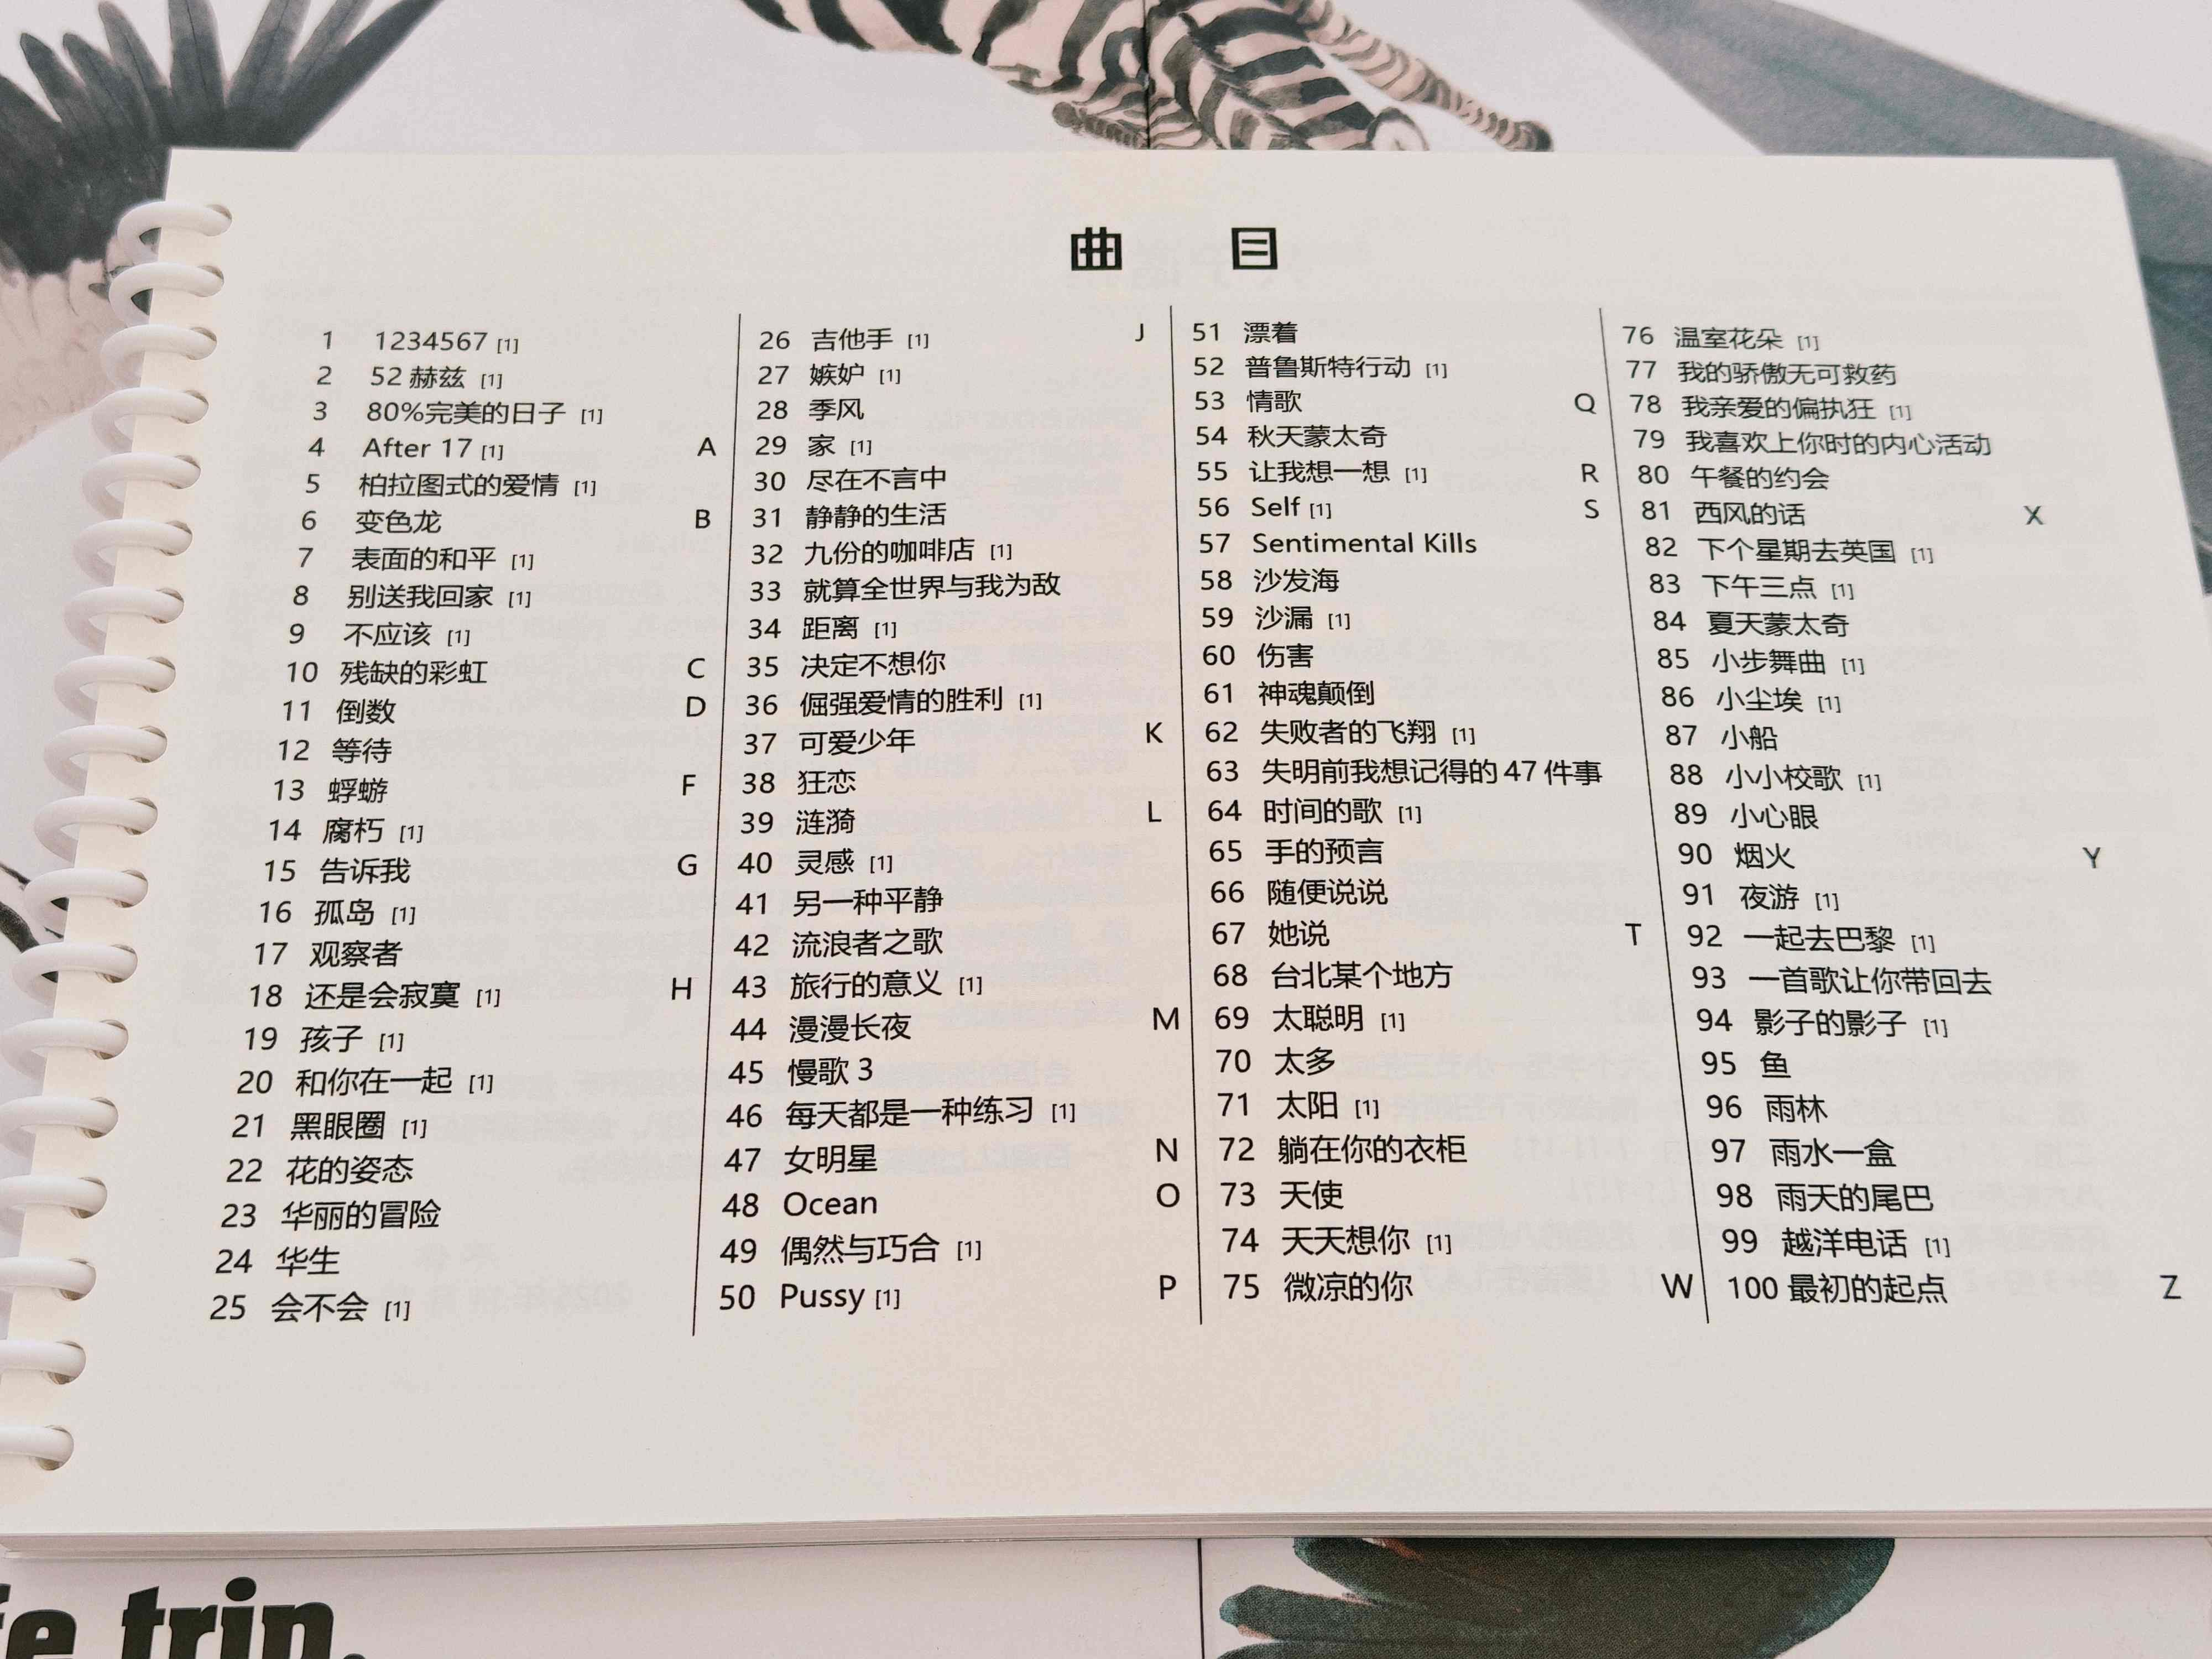 曲 目
1 1234567 [1]
2 52 赫兹 [1]
3 80%完美的日子 [1]
4 After 17 [1] A
5 柏拉图式的爱情 [1]
6 变色龙 B
7 表面的和平 [1]
8 别送我回家 [1]
9 不应该 [1]
10 残缺的彩虹 C
11 倒数 D
12 等待
13 蜉蝣 F
14 腐朽 [1]
15 告诉我 G
16 孤岛 [1]
17 观察者
18 还是会寂寞 [1] H
19 孩子 [1]
20 和你在一起 [1]
21 黑眼圈 [1]
22 花的姿态
23 华丽的冒险
24 华生
25 会不会 [1]
26 吉他手 [1] J
27 嫉妒 [1]
28 季风
29 家 [1]
30 尽在不言中
31 静静的生活
32 九份的咖啡店 [1]
33 就算全世界与我为敌
34 距离 [1]
35 决定不想你
36 倔强爱情的胜利 [1]
37 可爱少年 K
38 狂恋
39 涟漪 L
40 灵感 [1]
41 另一种平静
42 流浪者之歌
43 旅行的意义 [1]
44 漫漫长夜 M
45 慢歌 3
46 每天都是一种练习 [1]
47 女明星 N
48 Ocean O
49 偶然与巧合 [1]
50 Pussy [1] P
51 漂着
52 普鲁斯特行动 [1]
53 情歌 Q
54 秋天蒙太奇
55 让我想一想 [1] R
56 Self [1] S
57 Sentimental Kills
58 沙发海
59 沙漏 [1]
60 伤害
61 神魂颠倒
62 失败者的飞翔 [1]
63 失明前我想记得的 47 件事
64 时间的歌 [1]
65 手的预言
66 随便说说
67 她说 T
68 台北某个地方
69 太聪明 [1]
70 太多
71 太阳 [1]
72 躺在你的衣柜
73 天使
74 天天想你 [1]
75 微凉的你 W
76 温室花朵 [1]
77 我的骄傲无可救药
78 我亲爱的偏执狂 [1]
79 我喜欢上你时的内心活动
80 午餐的约会
81 西风的话 X
82 下个星期去英国 [1]
83 下午三点 [1]
84 夏天蒙太奇
85 小步舞曲 [1]
86 小尘埃 [1]
87 小船
88 小小校歌 [1]
89 小心眼
90 烟火 Y
91 夜游 [1]
92 一起去巴黎 [1]
93 一首歌让你带回去
94 影子的影子 [1]
95 鱼
96 雨林
97 雨水一盒
98 雨天的尾巴
99 越洋电话 [1]
100 最初的起点 Z
fe trip.